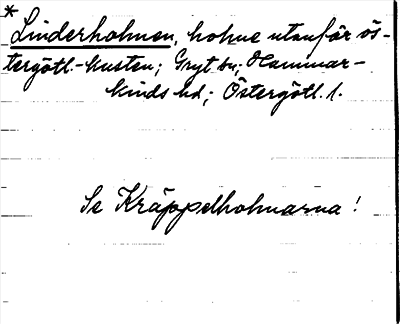 *
Linderholmen, holme utanför ös-
tergötl.-kusten; Gryt sn; Hammar-
kinds hd; Östergötl. l.
Se Kräppelholmarna!